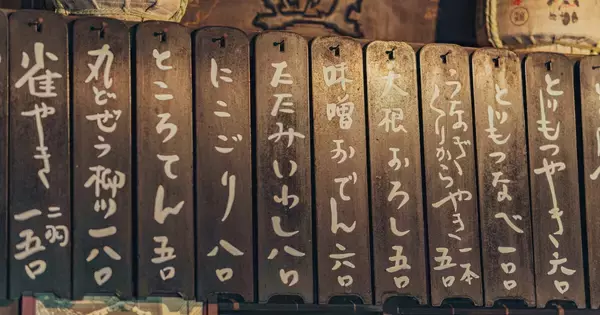 とりもつやき六〇
とりもつなべ一〇〇
うなぎ
くりからやき一本
五〇
大根おろし五〇
味噌おでん六〇
たたみいわし八〇
にこごり八〇
ところてん五〇
丸どぜう柳川一八〇
雀やき二羽
一五〇